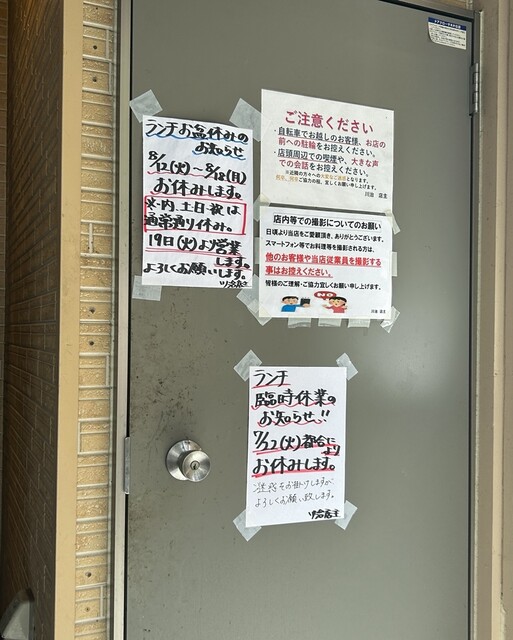 ランチお盆休みの
お知らせ
8/12(火)～8/18(月)
お休みします。
※内、土日祝は
通常通り休み。
19日(火)より営業
します。
よろしくお願いします。
川治店主
ご注意ください
・自転車でお越しのお客様、お店の
前への駐輪をお控えください。
・店頭周辺での喫煙や、大きな声
での会話をお控えください。
※近隣の方々への大変なご迷惑となります。
川治 店主
店内等での撮影についてのお願い
日頃より当店をご愛顧頂き、ありがとうございます。
スマートフォン等でお料理等を撮影される方は、
他のお客様や当店従業員を撮影する
事はお控えください。
皆様のご理解・ご協力宜しくお願い申し上げます。
NO
川治 店主
ランチ
臨時休業の
お知らせ!!
7/22(火)都合に
より
お休みします。
ご迷惑をお掛けしますが
よろしくお願い致します。
川治店主